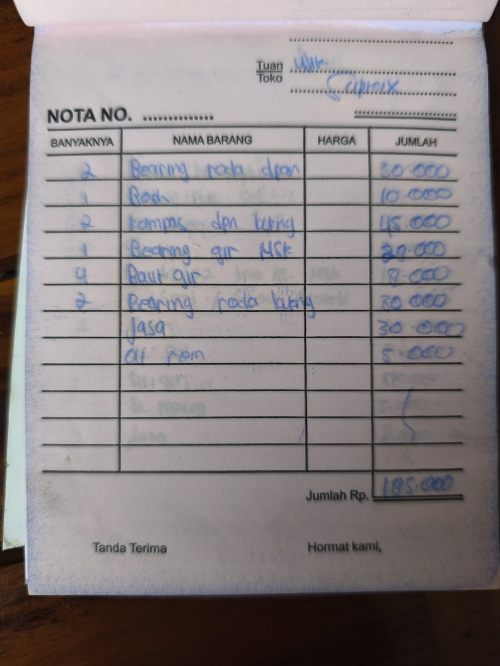 Tuan
Toko
NOTA NO. ..............
BANYAKNYA NAMA BARANG HARGA JUMLAH
2 Bearing roda dpan 30.000
1 10.000
2 kompas dpn bkng 45.000
1 Bearing gir NSK
4 Baut gir 18.000
2 Bearing roda bkng 30.000
Jasa 30.000
Oli rem 5.000
Jumlah Rp. 185.000
Tanda Terima Hormat kami,